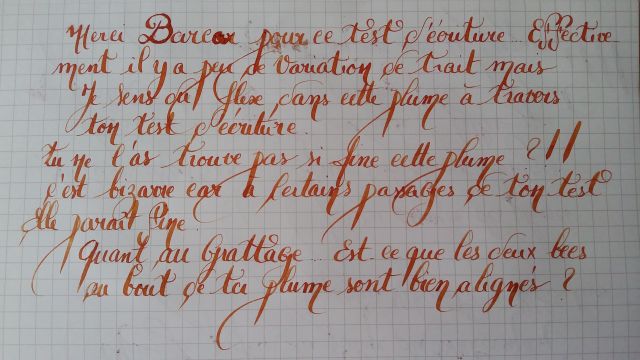 Merci Darcar pour ce test d'écriture... Effective
ment il y a peu de variation de trait mais
Je sens du flexe dans cette plume à travers
ton test d'écriture.
tu ne l'as trouve pas si fine cette plume ? //
c'est bizarre car à certains passages de ton test
elle paraît fine.
Quant au Grattage... Est-ce que les deux becs
au bout de ta plume sont bien alignés ?